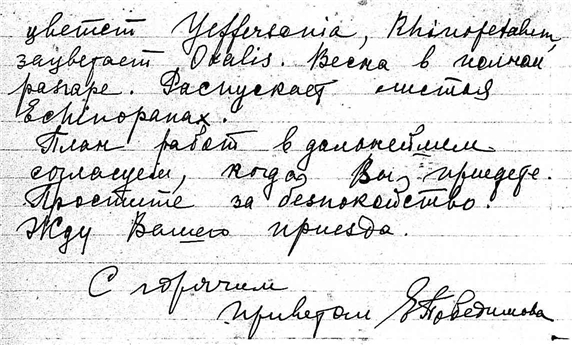 цветет Yeffersonia, Rhinopetalum,
зацветает Oxalis. Весна в полном
разгаре. Распускает листья
Echinopanax.
План работ в дальнейшем
согласуем, когда Вы приедете.
Простите за безпокойство.
Жду Вашего приезда.
С горячим
приветом ЕПобедимова